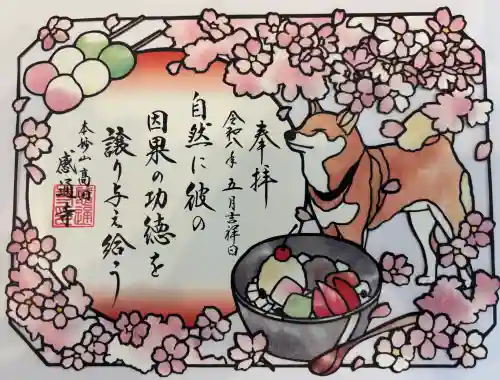 奉拝
令和八年 五月吉祥日
自然に彼の
因果の功徳を
譲り与え給う
本妙山高田
感通寺